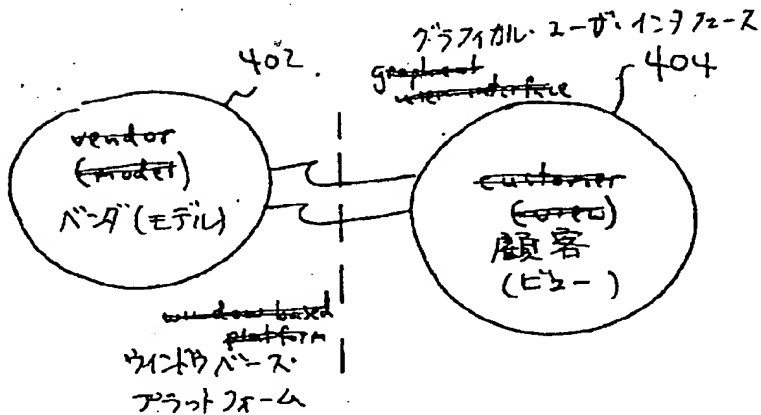 グラフィカル・ユーザ・インタフェース
402
404
graphical
user interface
vendor
(model)
ベンダ(モデル)
customer
(view)
顧客
(ビュー)
window based
platform
ウインドウベース・
プラットフォーム